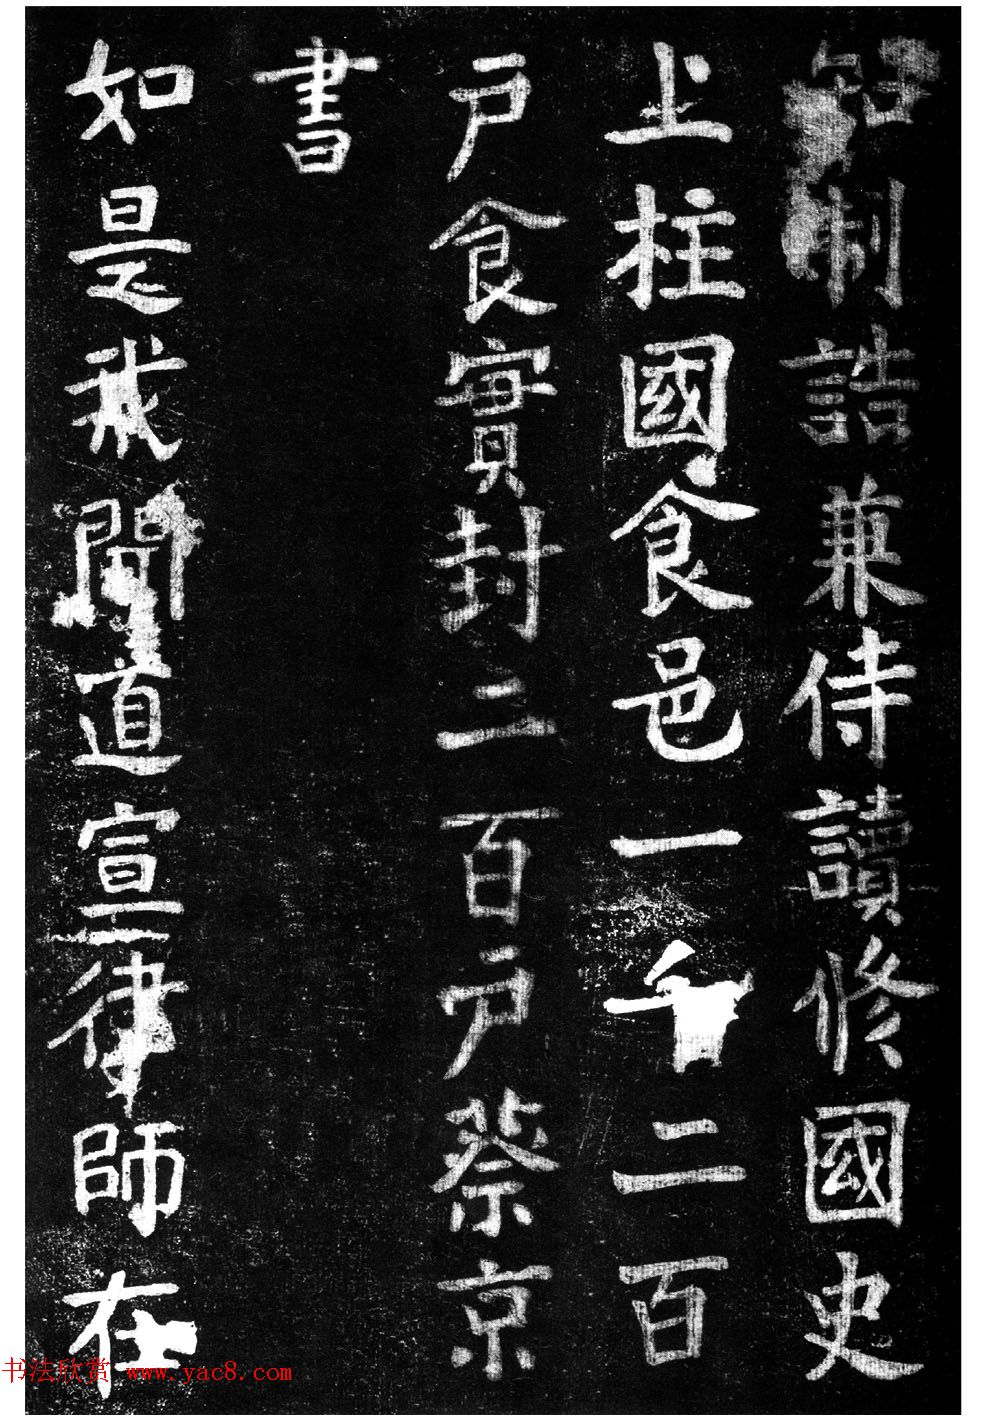 知制誥兼侍讀修國史
上柱國食邑一千二百
户食實封二百户蔡京
書
如是我聞道宣律師在
书法欣赏 www.yac8.com